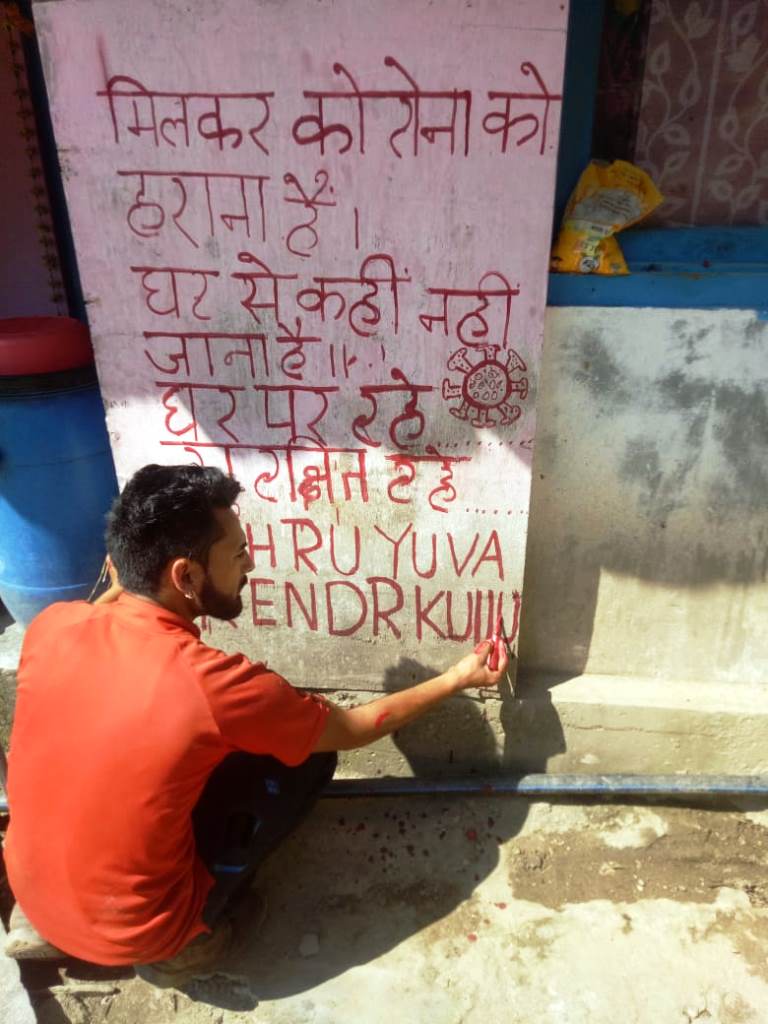 मिलकर कोरोना को
हराना है।
घर से कहीं नहीं
जाना है॥
घर पर रहे
रक्षित रहे
HRU YUVA
KENDR KUllU